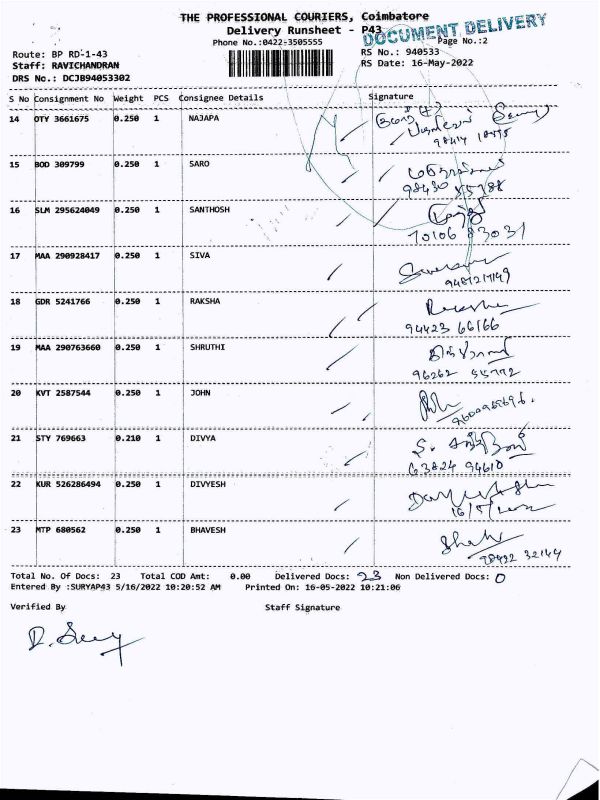 THE PROFESSIONAL COURIERS, Coimbatore
Delivery Runsheet - P43
DOCUMENT DELIVERY
Phone No.:0422-3505555
Page No.:2
Route: BP RD-1-43
RS No.: 940533
Staff: RAVICHANDRAN
RS Date: 16-May-2022
DRS No.: DCJB94053302
S No Consignment No Weight PCS Consignee Details Signature
14 OTY 3661675 0.250 1 NAJAPA
15 BOD 309799 0.250 1 SARO
16 SLM 295624049 0.250 1 SANTHOSH
70106 83031
17 MAA 290928417 0.250 1 SIVA
18 GDR 5241766 0.250 1 RAKSHA
94423 66166
19 MAA 290763660 0.250 1 SHRUTHI
96262 55772
20 KVT 2587544 0.250 1 JOHN
21 STY 769663 0.210 1 DIVYA
63824 94610
22 KUR 526286494 0.250 1 DIVYESH
23 MTP 680562 0.250 1 BHAVESH
98422 32144
Total No. Of Docs: 23 Total COD Amt: 0.00 Delivered Docs: 23 Non Delivered Docs: 0
Entered By :SURYAP43 5/16/2022 10:20:52 AM Printed On: 16-05-2022 10:21:06
Verified By Staff Signature